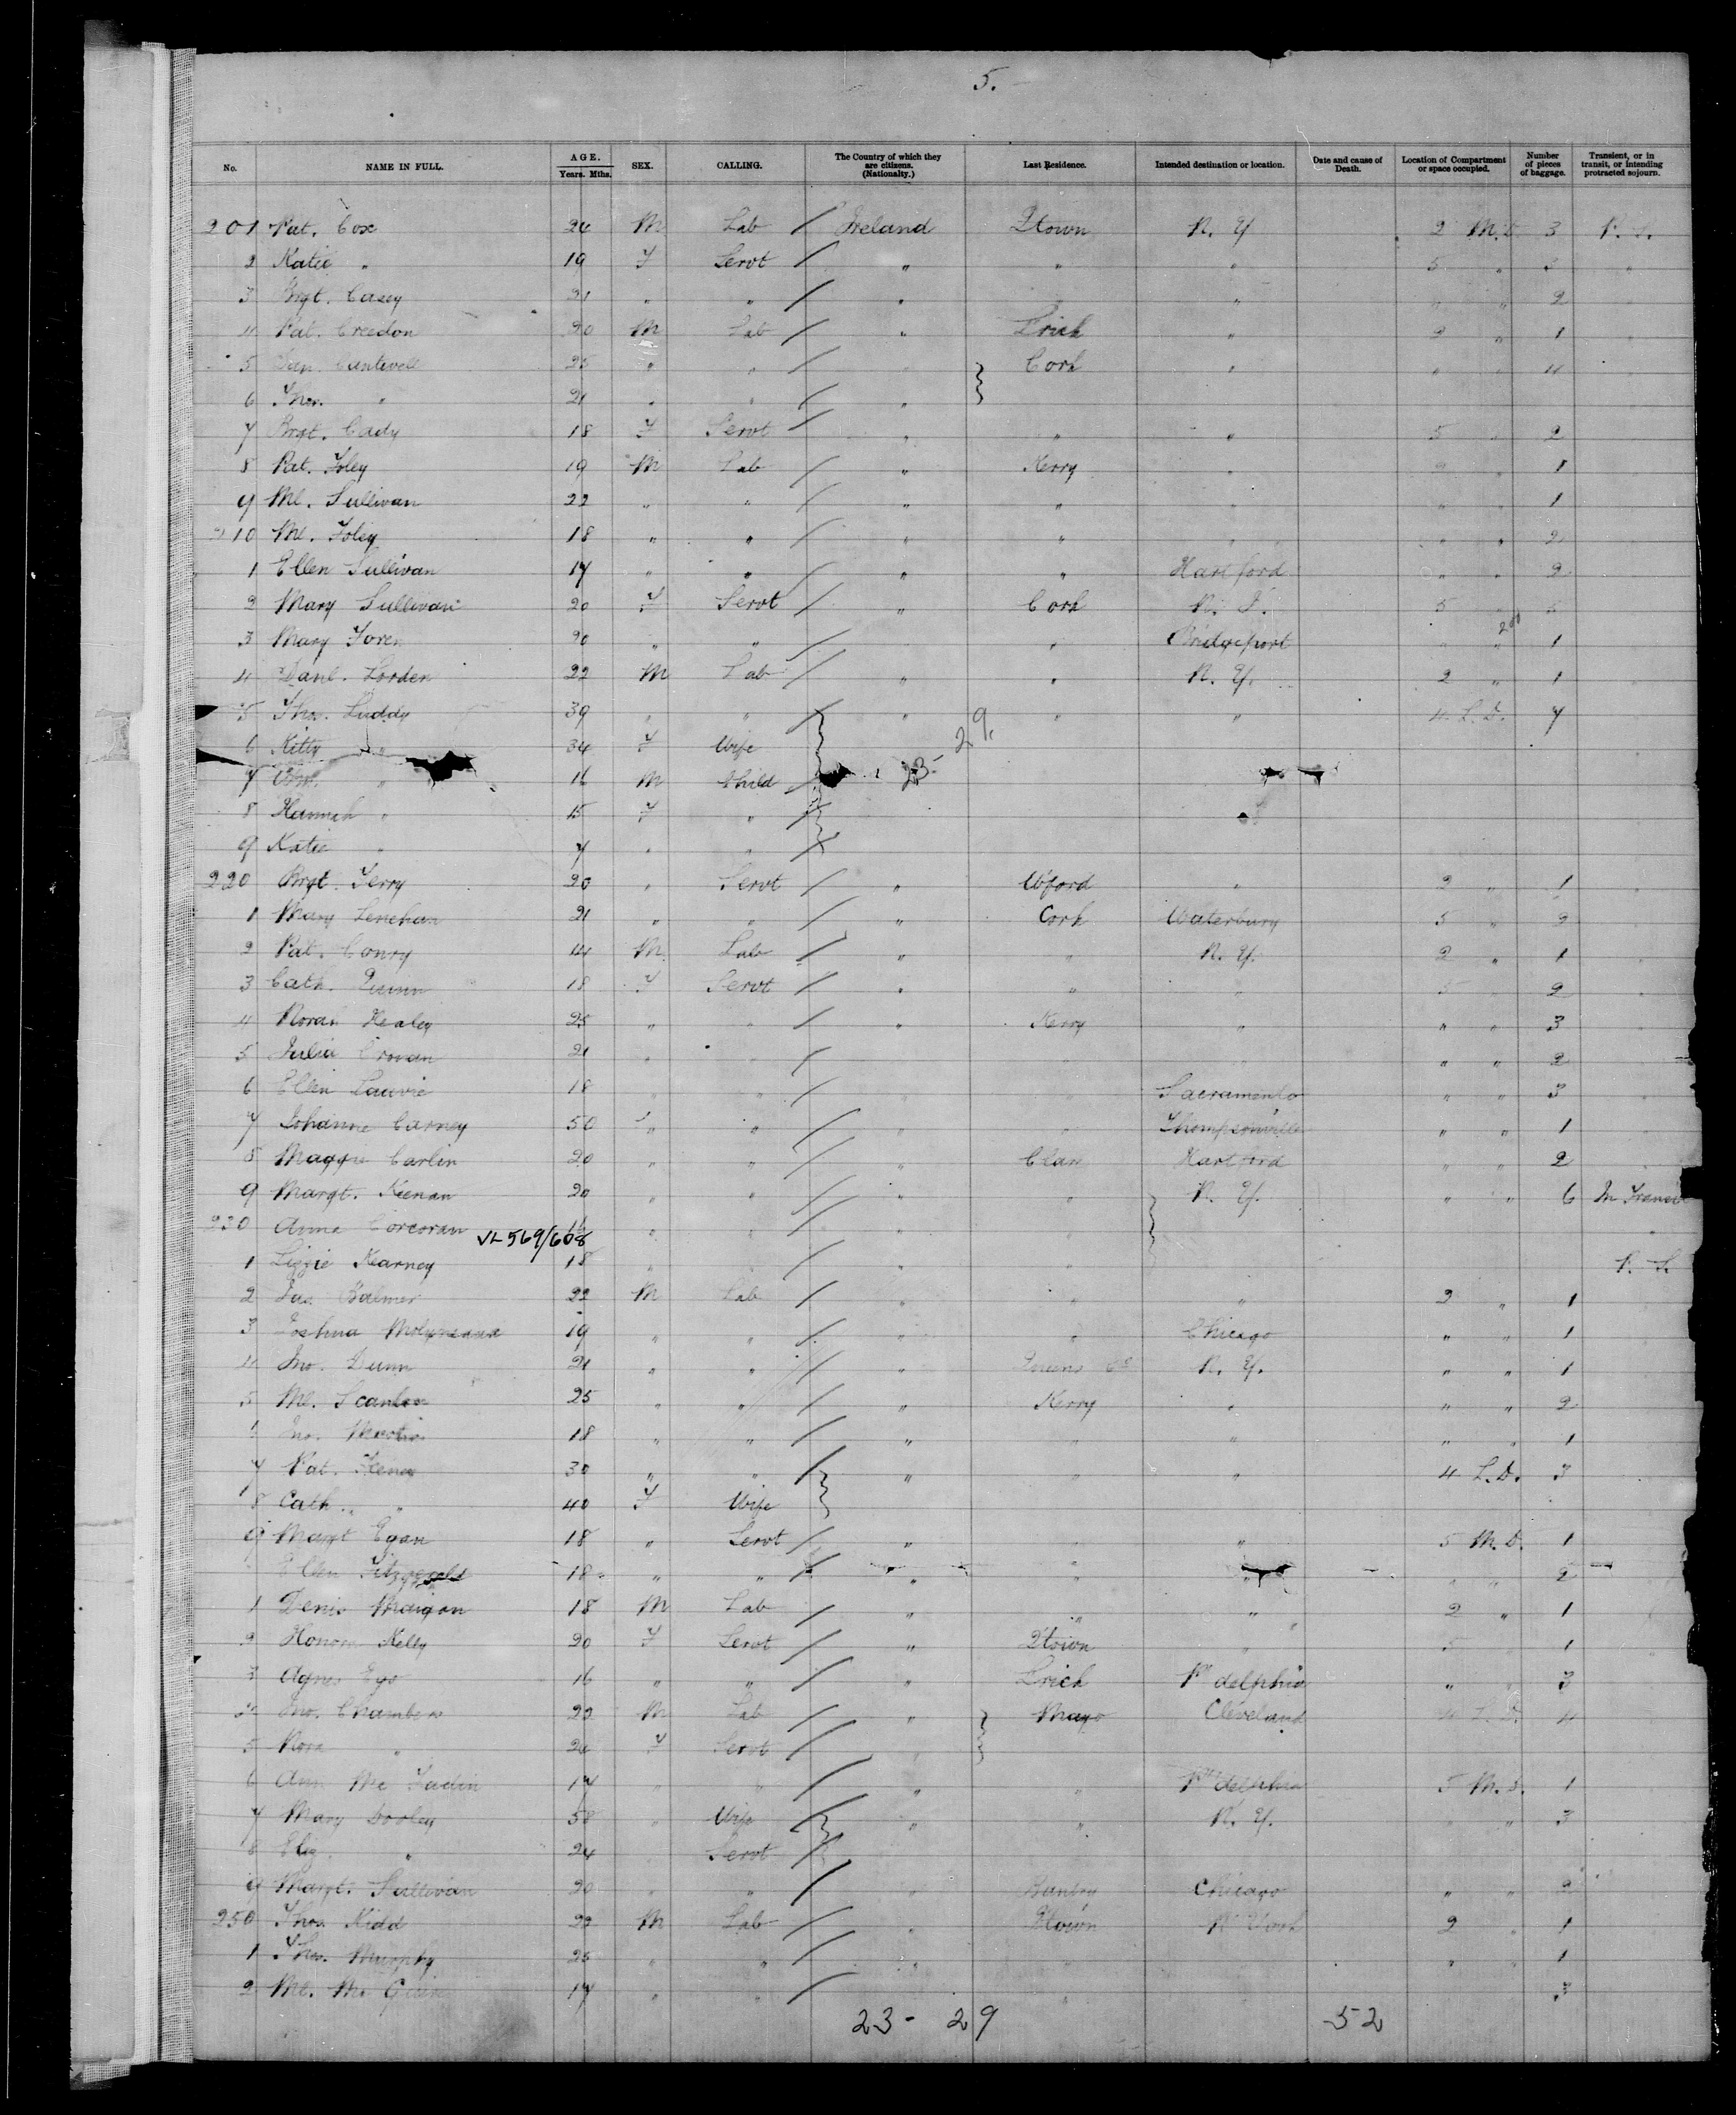 5.
No. NAME IN FULL. AGE. Years. Mths. SEX. CALLING. The Country of which they are citizens. (Nationalty.) Last Residence. Intended destination or location. Date and cause of Death. Location of Compartment or space occupied. Number of pieces of baggage. Transient, or in transit, or intending protracted sojourn.
201 Pat. Cox 24 M Lab / Ireland Qtown N. Y 2 M.D. 3 P. S.
2 Katie " 19 F Servt / " " " 5 " 3 "
3 Brgt. Casey 21 " " / " " " " " 2
4 Pat. Creedon 20 M Lab / " Lrick " 2 " 1
5 Dan. Cantwell 25 " " / " Cork " " " 4
6 Thos. " 21 " " / "
7 Brgt. Cady 18 F Servt / " " " 5 " 2
8 Pat. Foley 19 M Lab / " Kerry " 2 " 1
9 Ml. Sullivan 22 " " / " " " " " 1
210 Ml. Foley 18 " " / " " " " " 2
1 Ellen Sullivan 17 " " / " " Hartford " " 2
2 Mary Sullivan 20 F Servt / " Cork N. J. 5 " 5
3 Mary 20 " " / " " Bridgeport " " 1
4 Danl. Lorden 22 M Lab / " " N. Y. 2 " 1
5 Thos. Luddy 39 " " / " " " 4 L. D. 7
6 Kitty " 34 F Wife 29
7 Wm. " 16 M Child / 23-
8 Hannah " 15 F " /
9 Katie " 7 " " /
220 Brgt. Terry 20 " Servt / " Wford " 2 " 1
1 Mary Lenehan 21 " " / " Cork Waterbury 5 " 2
2 Pat. Conry 44 M. Lab / " " N. Y. 2 " 1
3 Cath. Quinn 18 F Servt / " " " 5 " 2
4 Norah Healey 25 " " / " Kerry " " " 3
5 Julia Crovan 21 " " / " " " " " 2
6 Ellen 18 " " / " " Sacramento " " 3
7 Johanna Carney 50 " " / " " Thompsonville " " 1
8 Maggie Carlin 20 " " / " Clare Hartford " " 2
9 Margt. Keenan 20 " " / " " N. Y. " " 6 In Transit
230 Anna Corcoran VL 569/608 16 " " / " " "
1 Lizzie Kearney 18 " " / " " P. S.
2 Jas. Balmer 22 M Lab / " " " 2 " 1
3 Joshua Molyneaux 19 " " / " " Chicago " " 1
4 Jno. Dunn 21 " " / " Queens Co. N. Y. " " 1
5 Ml. Scanlon 25 " " / " Kerry " " " 2
Jno. 18 " " / " " " " " 1
7 Pat. 30 " " / " " " 4 L.D. 3
8 Cath. " 40 F Wife
9 Margt Egan 18 " Servt / " " " 5 M. D. 1
Ellen Fitzgerald 18 " " / " " " " " 2
1 Denis Mangan 18 M Lab / " " " 2 " 1
2 Honora Kelly 20 F Servt / " Qtown " 5 1
3 Agnes 16 " " / " Lrick Pa delphia " " 3
Jno. Chambers 22 M Lab / " Mayo Cleveland 4 L. D. 4
5 Nora " 24 F Servt / "
6 Ann Mc Fadin 17 " " / " " Pa delphia 5 M. D. 1
7 Mary Dooley 58 " Wife / " " N. Y. " " 3
8 Eliz. " 24 Servt /
9 Margt. Sullivan 20 " " / " Bantry Chicago " " 2
250 Thos. Kidd 22 M Lab / " Qtown N York 2 " 1
1 Thos. Murphy 25 " " / " " " " 1
2 Ml. Mc 17 " " / " 3
23- 29 52